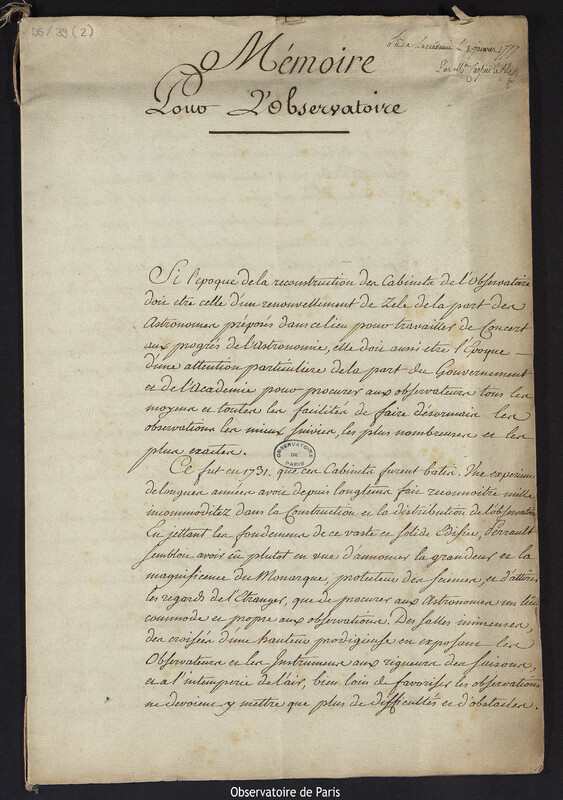 D5/39 (2)
Lu à l'académie le 8 fevrier 1777
Par Mr Cassini le fils
Mémoire
Pour L'Observatoire
Si l'epoque de la reconstruction des Cabinets de l'Observatoire
doit etre celle d'un renouvellement de Zele de la part des
Astronomes préposés dans ce lieu pour travailler de Concert
aux progrès de l'Astronomie, elle doit aussi etre l'Epoque
d'une attention particuliere de la part du Gouvernement
et de l'Academie pour procurer aux observateurs tous les
moyens et toutes les facilités de faire désormais les
observations les mieux suivies, les plus nombreuses et les
plus exactes.
OBSERVATOIRE
DE
PARIS
Ce fut en 1731. que ces Cabinets furent batis. Une experience
de longues années avoit depuis longtems fait reconnoitre mille
incommoditez dans la Construction et la distribution de l'observatoire
En jettant les fondemens de ce vaste et solide Edifice, Perrault
sembloit avoir eu plutot en vue d'annoncer la grandeur et la
magnificence du Monarque, protecteur des sciences, et d'attirer
les regards de l'Etranger, que de procurer aux Astronomes un lieu
commode et propre aux observations. Des salles immenses,
des croisées d'une hauteur prodigieuse en exposant les
Observateurs et les Instrumens aux rigueurs des saisons,
et a l'intemperie de l'air, bien loin de favoriser les observations
ne devoient y mettre que plus de difficultés et d'obstacles.
Observatoire de Paris